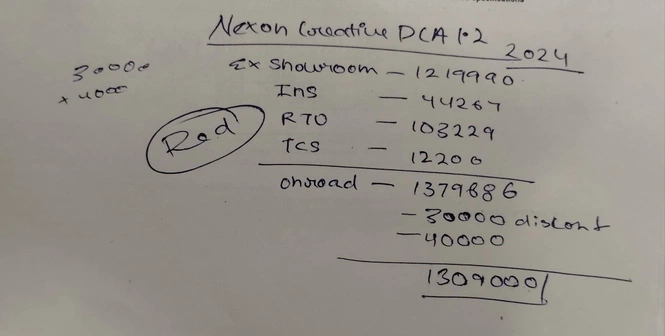 Nexon Creative DCA 1.2
2024
30000
x 4000
Ex Showroom - 1219990
Ins - 44267
RTO - 103229
Red
TCS - 12200
Onroad - 1379686
- 30000 discont
- 40000
1309000/